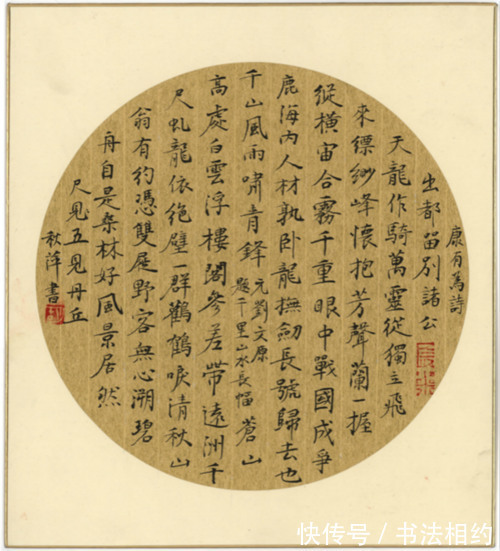 康有為詩
出都留別諸公
天龍作騎萬靈從獨立飛
來縹緲峰懷抱芳聲蘭一握
縱橫宙合霧千重眼中戰國成爭
鹿海內人材孰卧龍撫劒長號歸去也
千山風雨嘯青鋒 元劉文原
題千里山水長幅 蒼山
高處白雲浮樓閣參差帶遠洲千
尺虬龍依絕壁一群鸛鶴唳清秋山
翁有約憑雙屐野客無心溯碧
舟自是桑林好風景居然
尺見五見丹丘
秋萍書
快传号 / 书法相约